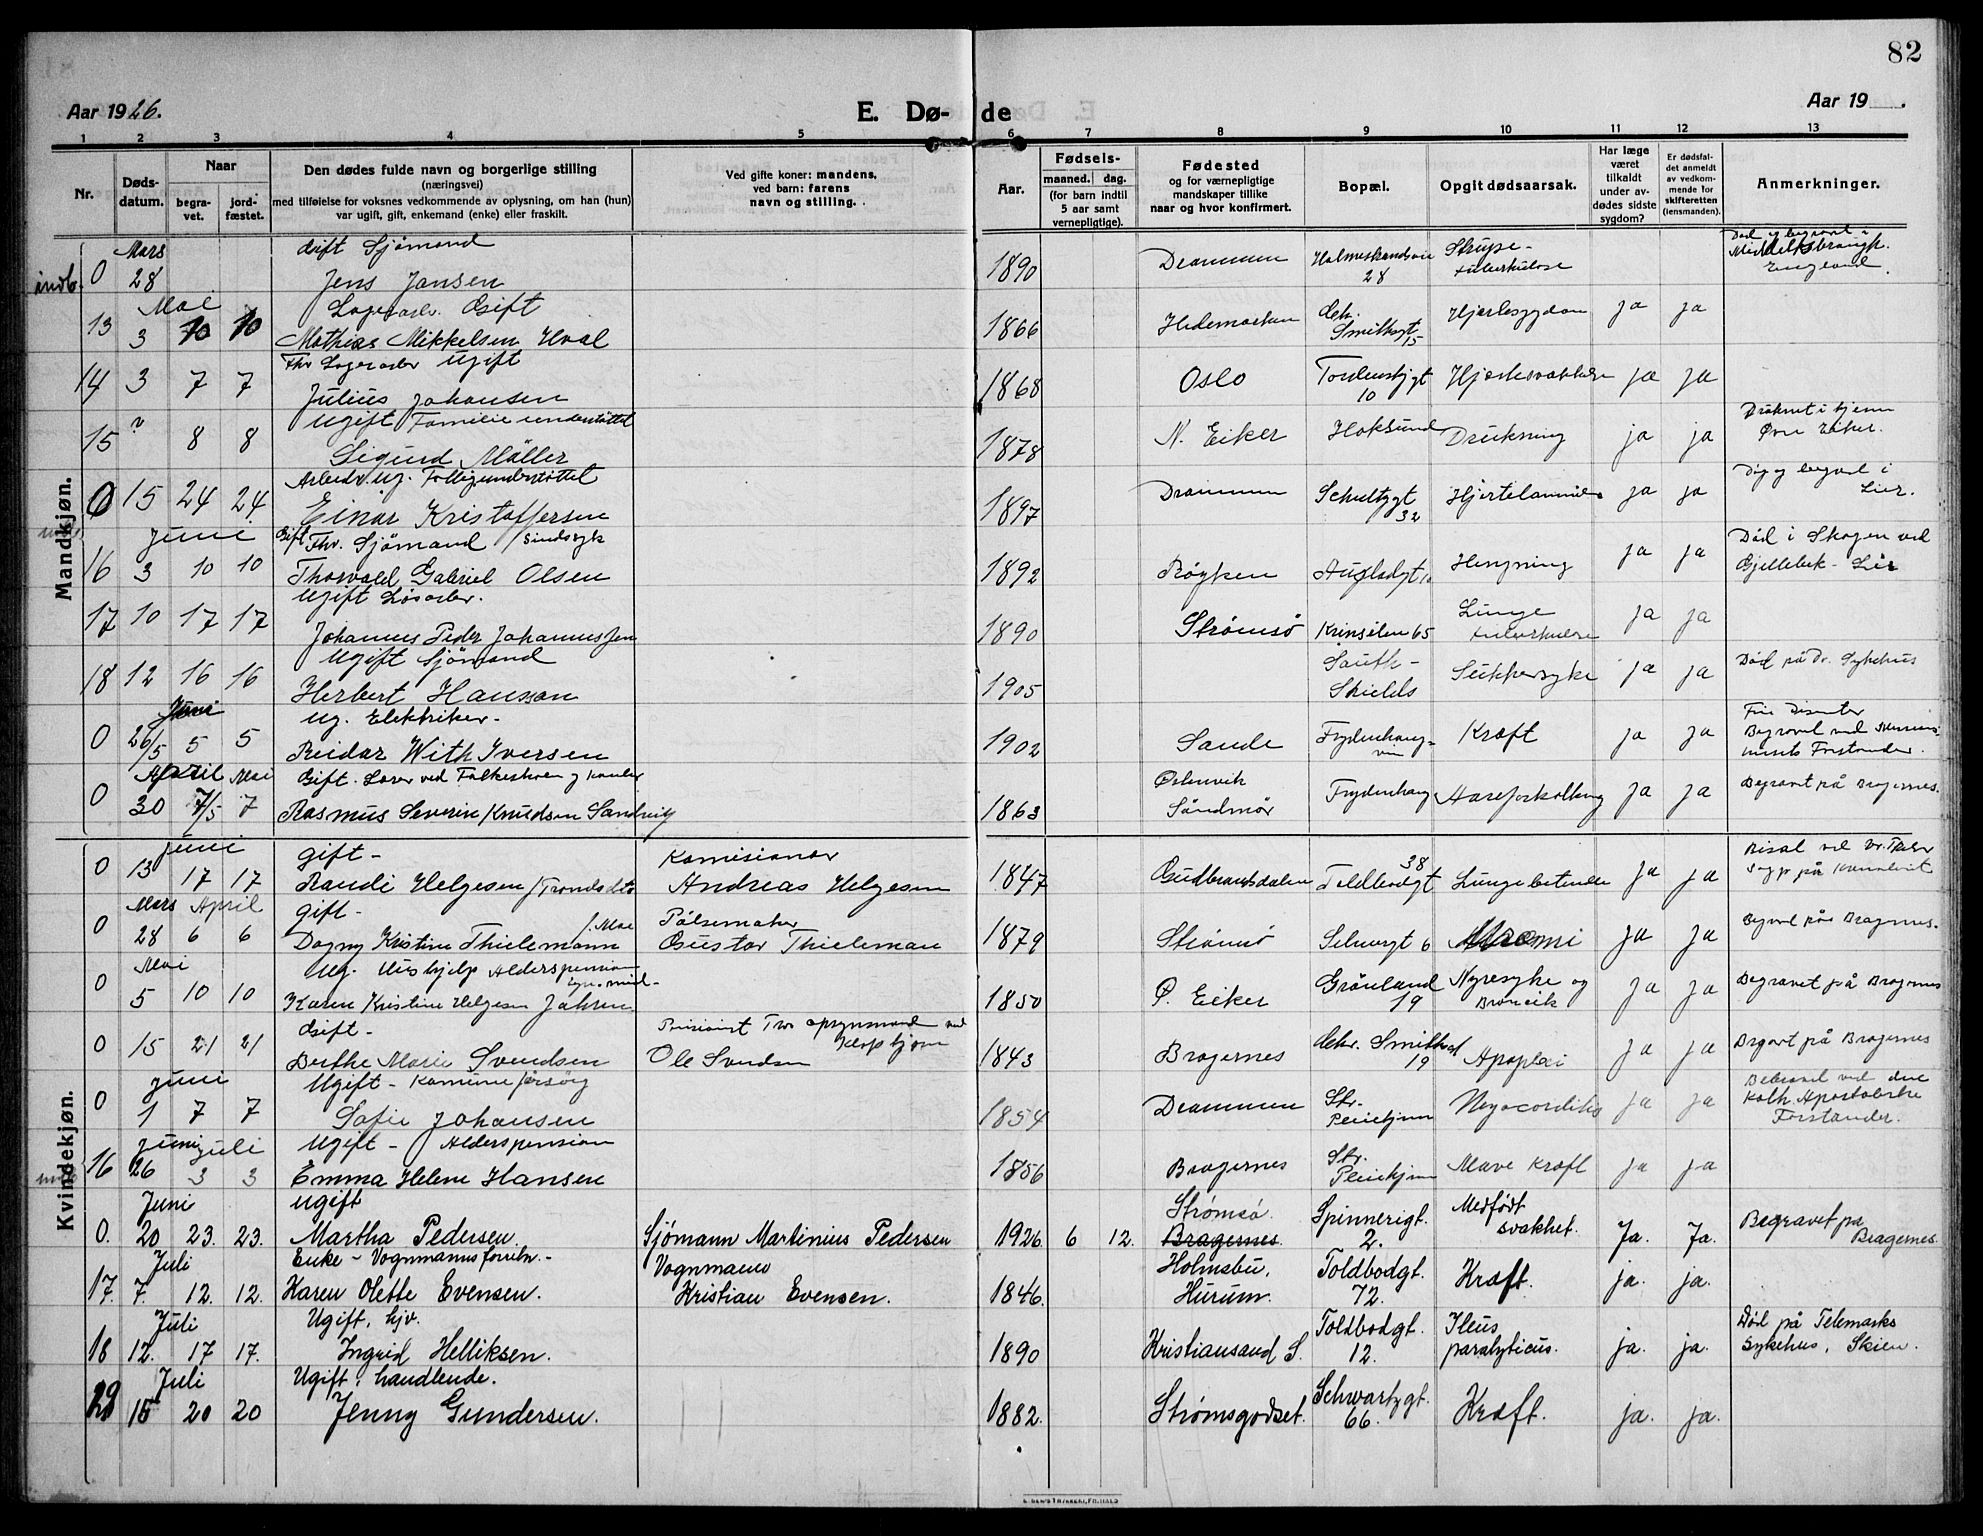 82
Aar 1926.
E. Dø-
de
Aar 19 .
1 2 3 4 5 6 7 8 9 10 11 12 13
Nr.
Døds-
datum.
Naar
begra-
vet.
jord-
fæstet.
Den dødes fulde navn og borgerlige stilling
(næringsvei)
med tilføielse for voksnes vedkommende av oplysning, om han (hun)
var ugift, gift, enkemand (enke) eller fraskilt.
Ved gifte koner: mandens,
ved barn: farens
navn og stilling.
Aar.
Fødsels-
maaned. dag.
(for barn indtil
5 aar samt
vernepligtige).
Fødested
og for værnepligtige
mandskaper tillike
naar og hvor konfirmert.
Bopæl.
Opgit dødsaarsak.
Har læge
været
tilkaldt
under av-
dødes sidste
sygdom?
Er dødsfal-
det anmeldt
av vedkom-
mende for
skifteretten
(lensmanden).
Anmerkninger.
Mandkjøn.
indb.
Mars
Gift Sjömand
0 28 Jens Jansen 1890 Drammen
28
Struge-
tuberkulose
Död og begravet i
England.
Mai
Lagerarb. Gift
13 3 10 10 Mathias Mikkelsen Hval 1866 Hedemarken
Smithsgt
15
Hjertesygdom ja ja
Fhv Lagerarb ugift
14 3 7 7 Julius Johansen 1868 Oslo Tordenskj gt
10
Hjertesvakkelse ja ja
Ugift Familie understöttet
15 ? 8 8 Sigurd Möller 1878 N. Eiker Hoksund Drukning ja ja
Övre Eiker.
Arbeidr. ug.
0 15 24 24 Einar Kristoffersen 1897 Drammen Schultzgt
32
Hjertelammelse ja ja
Död og begravet i
Lier.
Juni
Gift Fhv. Sjömand / Sindssyk
16 3 10 10 Thorvald Gabriel Olsen 1892 Röyken Hengning ja ja
Död i Skogen ved
Gjellebek - Lier
Ugift Løsarb.
17 10 17 17 Johannes Peder Johannessen 1890 Strømsø 65
Lunge
tuberkulose ja ja
Ugift Sjömand
18 12 16 16 Herbert Hansson 1905
South-
Shields
Sukkersyke ja ja
Död på Dr. Sykehus
Juni
Ug. Elektriker.
0 26/5 5 5 Reidar With Iversen 1902 Sande Frydenhaug-
vein
Kræft ja ja
Fri Disenter
Begravet ved
Forstander.
April Mai
Gift. Lærer ved Folkeskolen
0 30 7/5 7 Rasmus Severin Knudsen Sandvig 1863
Söndmör
Frydenhaug Aareforkalkning ja ja
Begravet på Bragernes.
Kvindekjøn.
Juni
Gift -
Komisionær
0 13 17 17 Randi Helgesen / Trondsdtr Andreas Helgesen 1847 Gudbrandsdalen
38
Toldbodgt Lungebetendelse ja ja
Mars April
Gift -
Pölsemaker
0 28 6 6 Dagny Kristine Thielemann Gustav Thieleman 1879 Strømsø 6 ja ja
Begravet på Bragernes.
Mai
Ug. Hushjelp Alderspension
0 5 10 10 Karen Kristine Helgesen 1850 Ö. Eiker Grönland
19
Nyresyke og
Bronkit ja ja
Begravet på Bragernes
Gift -
0 15 21 21 Berthe Marie Svendsen Ole Svendsen 1843 Bragernes
19
Apoplexi ja ja
Begravet på Bragernes
Juni
Ugift - Komune forsörg
0 1 7 7 Sofie Johansen 1854 Drammen
Str.
Pleiehjem
Myocorditis ja ja
Kath. Apostoliske
Forstander.
Juni Juli
Ugift - Alderspension
16 26 3 3 Emma Helene Hansen 1856 Bragernes
Str.
Pleiehjem
Mave kræft ja ja
Juni
Ugift
0. 20 23. 23. Martha Pedersen. Sjømann Martinius Pedersen 1926 6 12.
Strømsø.
Bragernes.
Spinnerigt.
2.
Medfødt
svakhet. Ja. Ja.
Begravet på
Bragernes.
Juli
Enke - Vognmannsforretn. -
Vognmann
17. 7. 12. 12. Karen Olette Evensen. Kristian Evensen. 1846.
Holmsbu,
Hurum.
Toldbodgt.
72.
Kræft. ja. ja.
Juli
Ugift, hjv.
18 12. 17 17. Ingrid Helliksen. 1890 Kristiansand S.
Toldbodgt.
12.
Ileus
paralyticus. ja. ja.
Død på Telemarks
Sykehus, Skien.
Juli
Ugift, handlende.
15 20 20 Jenny Gundersen. 1882. Strømsgodset.
Schwartzgt.
66.
Kræft. ja. ja.